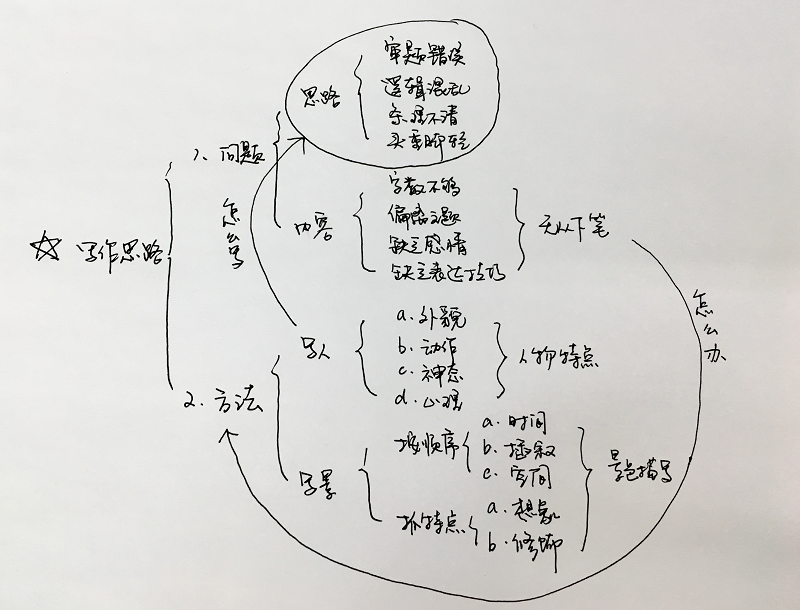 ☆ 写作思路
1、问题
思路
审题错误
逻辑混乱
条理不清
头重脚轻
内容
字数不够
偏离主题
缺乏感情
缺乏表达技巧
无从下笔
怎么写
怎么办
2.方法
写人
a.外貌
b.动作
c.神态
d.心理
人物特点
写景
按顺序
a.时间
b.插叙
c.空间
抓特点
a.想象
b.修辞
景色描写